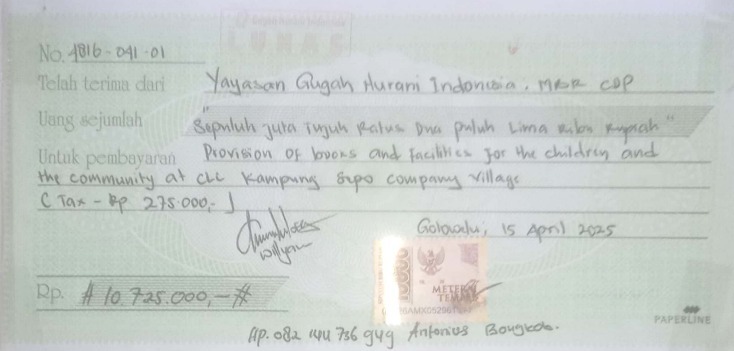 LUNAS
No. 4816-041-01
Telah terima dari Yayasan Gugah Nurani Indonesia. MBR CDP
Uang sejumlah "Sepuluh Juta Tujuh Ratus Dua Puluh Lima Ribu Rupiah"
Untuk pembayaran Provision of books and facilities for the children and
the community at CLC Kampung company Village
( Tax - Rp 275.000,- )
Golowelu, 15 April 2025
Rp. # 10.725.000,- #
10000
METERAI
TEMPEL
PAPERLINE
Hp. 082 144 736 949 Antonius